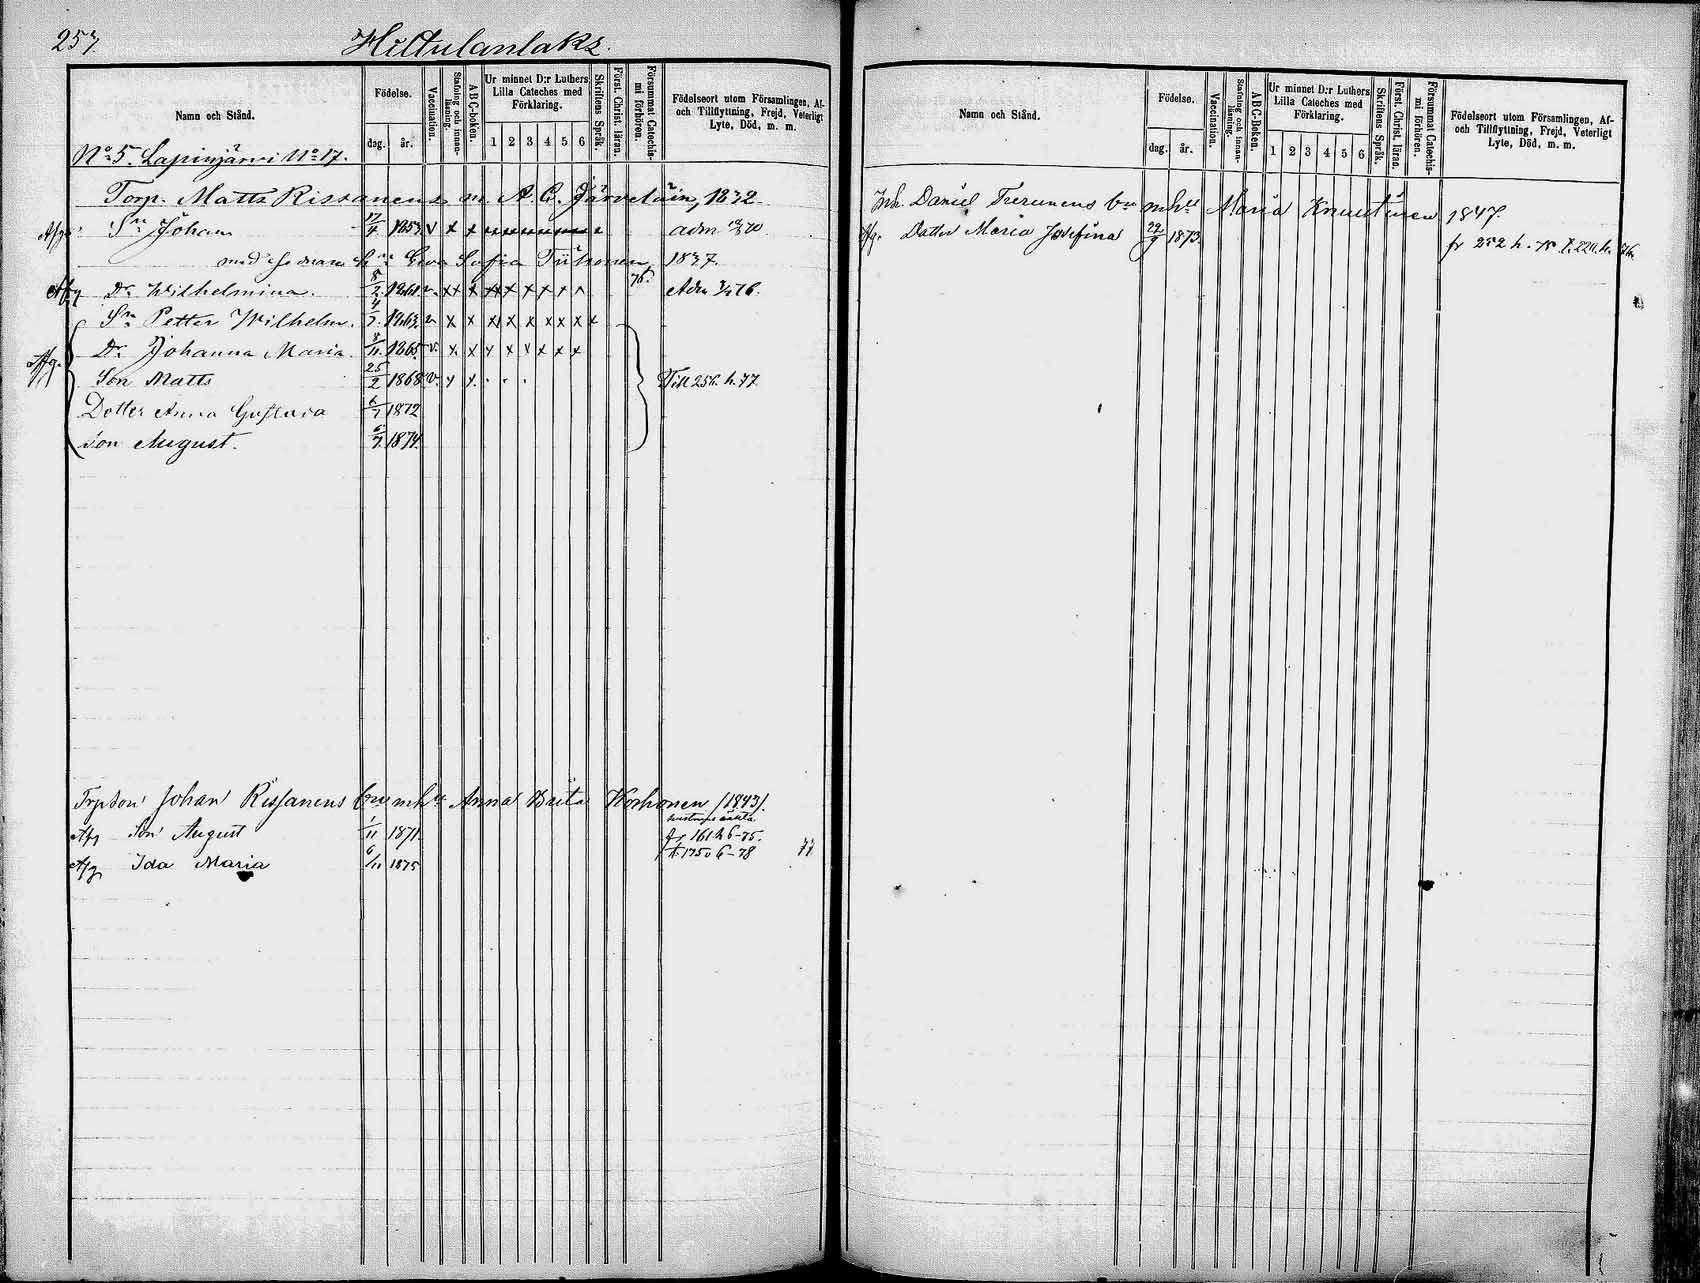 257
Hiltulanlaks.
Namn och Stånd.
Födelse.
dag. år.
Vaccination.
Stafning och innan-läsning.
A B C-boken.
Ur minnet D:r Luthers Lilla Cateches med Förklaring.
1 2 3 4 5 6
Skriftens Språk.
Först. Christ. läran.
Försummat Catechis-mi förhören.
Födelseort utom Församlingen, Af- och Tillflyttning, Frejd, Veterligt Lyte, Död, m. m.
No 5. Lapinjärvi No 17.
Torp. Matts Rissanens m. A. C. Järveläin, 1832
Afg. Sn Johan 17/4 1853 v x x adm
med hustru Eva Sofia Tiihonen, 1837.
Afg Dr Wilhelmina. 8/2 1861 v. x x x x x x x x 76. Adm 76.
Sn Petter Wilhelm. 4/7 1863 v x x x x x x x x x
Afg. Dr Johanna Maria. 8/11 1865 v. x x x x x x x x
Son Matts 25/2 1868 v. x x Till 256. h. 77.
Dotter Anna Gustava 6/7 1872
Son August. 6/7 1874.
Torpson Johan Rissanens bn m hu Anna Brita Korhonen (1843).
Afg Son August 1/11 1871 fr 161 h 6-75.
Afg Ida Maria 6/11 1875 t. 175 v 6-78 77
Namn och Stånd.
Födelse.
dag. år.
Vaccination.
Stafning och innan-läsning.
A B C-Boken.
Ur minnet D:r Luthers Lilla Cateches med Förklaring.
1 2 3 4 5 6
Skriftens Språk.
Först. Christ. läran.
Försummat Catechis-mi förhören.
Födelseort utom Församlingen, Af- och Tillflyttning, Frejd, Veterligt Lyte, Död, m. m.
Inh. Daniel bn m hu Maria Knuutinen 1847.
Afg. Dotter Maria Josefina 22/9 1873. fr 252 h. 75 t. 220. h.